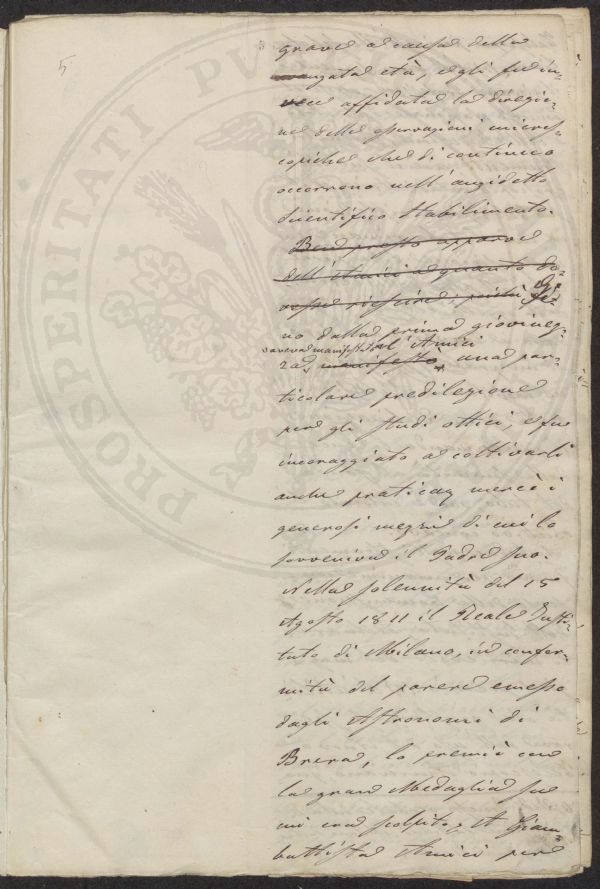 5
grave a causa della
avanzata età, e gli fu in-
vece affidata la direzio-
ne delle osservazioni micros-
copiche che di continuo
occorrono nell'anzidetto
scientifico Stabilimento.
Ben presto apparve
dell'Amici a quanto do-
vesse riescire; poichè fi- Fi-
no dalla prima giovinez-
aveva manifestato l'Amici
za, manifestò una par-
ticolare predilezione
per gli studi ottici, e fu
incoraggiato a coltivarli
anche praticam mercè i
generosi mezzi di cui lo
sovveniva il Padre suo.
Nella solennità del 15
Agosto 1811 il Reale Isti-
tuto di Milano, in confor-
mità del parere emesso
dagli Astronomi di
Brera, lo premiò con
la gran Medaglia su
cui era scolpito, A Giam-
battista Amici per
PROSPERITATI PV